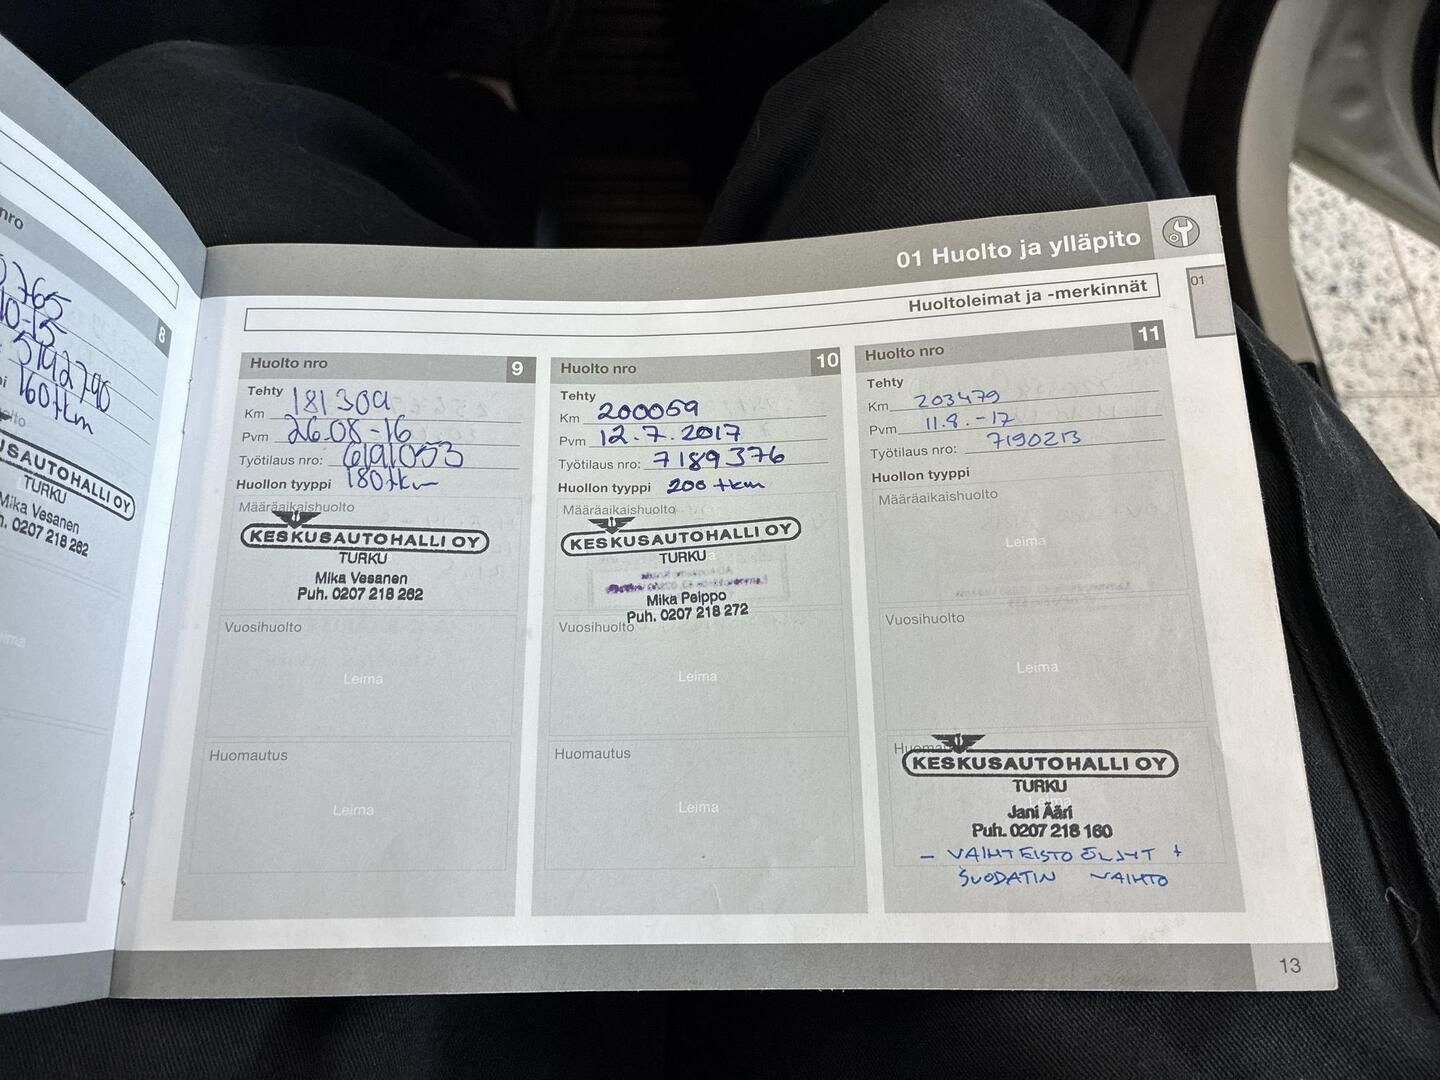 nro
8
765
10-15
5192790
160tkm
KESKUSAUTOHALLI OY
TURKU
Mika Vesanen
Puh. 0207 218 262
01 Huolto ja ylläpito
01
Huoltoleimat ja -merkinnät
Huolto nro 9
Tehty
Km 181309
Pvm 26.08-16
Työtilaus nro: 6191053
Huollon tyyppi 180tkm
Määräaikaishuolto
KESKUSAUTOHALLI OY
TURKU
Mika Vesanen
Puh. 0207 218 262
Vuosihuolto
Leima
Huomautus
Leima
Huolto nro 10
Tehty
Km 200059
Pvm 12.7.2017
Työtilaus nro: 7189376
Huollon tyyppi 200 tkm
Määräaikaishuolto
KESKUSAUTOHALLI OY
TURKU
Mika Pelppo
Puh. 0207 218 272
Vuosihuolto
Leima
Huomautus
Leima
Huolto nro 11
Tehty
Km 203479
Pvm 11.8.-17
Työtilaus nro: 7190213
Huollon tyyppi
Määräaikaishuolto
Leima
Vuosihuolto
Leima
Huomautus
KESKUSAUTOHALLI OY
TURKU
Jani Ääri
Puh. 0207 218 160
- VAIHTEISTO ÖLJYT +
SUODATIN VAIHTO
13